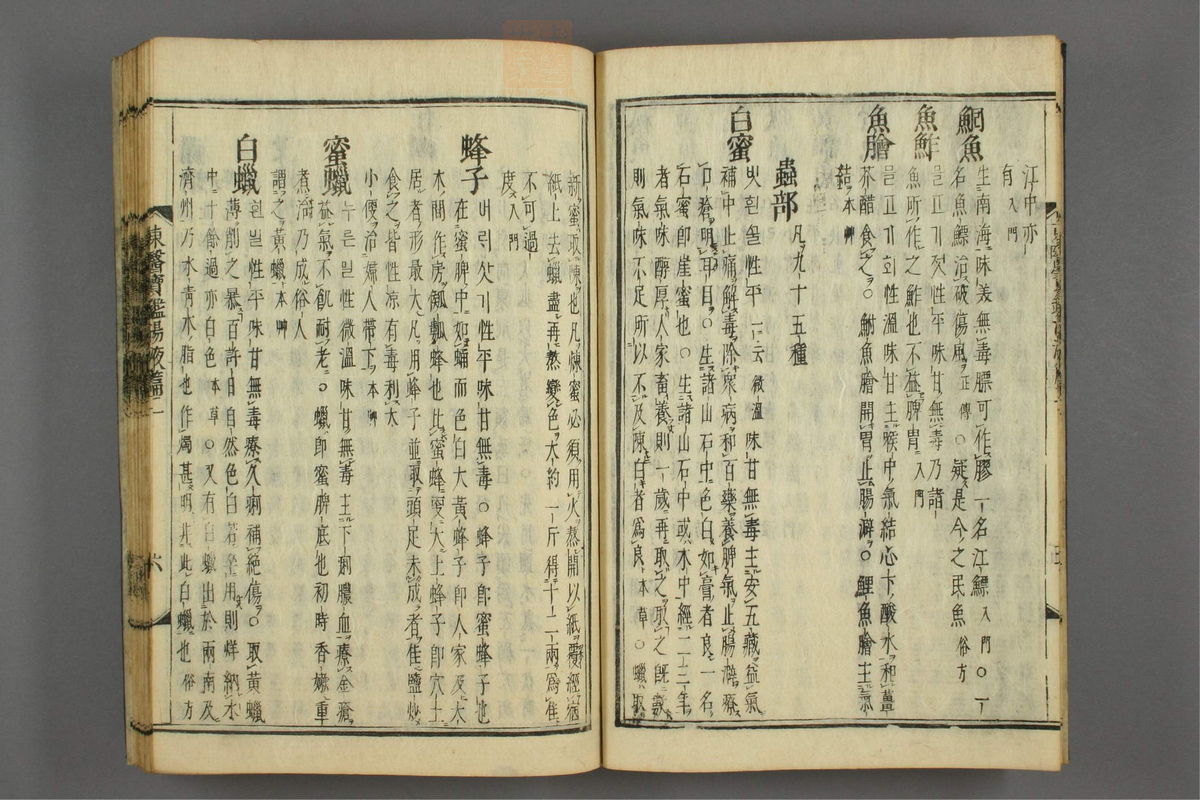 江中亦
有 入門
鮰魚 生南海味美無毒膘可作膠一名江鰾 入門 ○一
名魚鰾治破傷風 正傳 ○疑是今之民魚 俗方
魚鮓 믈고기젓性平味甘無毒乃諸
魚所作之鮓也不益脾胃 入門
魚膾 믈고기회性溫味甘主喉中氣結心下酸水和薑
芥醋食之○鮒魚膾開胃止腸澼○鯉魚膾主氣
結 本草
蟲部 凡九十五種
白蜜 ᄭᅮᆯ性平 一云微溫 味甘無毒主安五藏益氣
補中止痛解毒除衆病和百藥養脾氣止腸澼療
口瘡明耳目○生諸山石中色白如膏者良一名
石蜜卽崖蜜也○生諸山石中或木中經二三年
者氣味醇厚人家畜養則一歲再取之取之旣數
則氣味不足所以不及陳白者爲良 本草 ○蠟取
新蜜取陳也凡煉蜜必須用火熬開以紙覆經宿
紙上去蠟盡再熬變色大約一斤得十二兩爲佳
不可過
度 入門
蜂子 性平味甘無毒○蜂子卽蜜蜂子也
在蜜脾中如蛹而色白大黃蜂子卽人家及大
木間作房瓠𤬛蜂也比蜜蜂更大土蜂子卽穴土
居者形最大凡用蜂子並取頭足未成者佳鹽炒
食之皆性涼有毒利大
小便治婦人帶下 本草
蜜蠟 누른밀性微溫味甘無毒主下痢膿血療金瘡
益氣不飢耐老○蠟卽蜜脾底也初時香嫩重
煮治乃成俗人
謂之黃蠟 本草
白蠟 흰밀性平味甘無毒療久痢補絕傷○取黃蠟
薄削之暴百許日自然色白若卒用則烊納水
中十餘過亦白色 本草 ○又有白蠟出於兩南及
濟州乃水靑木脂也作燭甚明非此白蠟也 俗方
東醫寶鑑湯液篇二
六